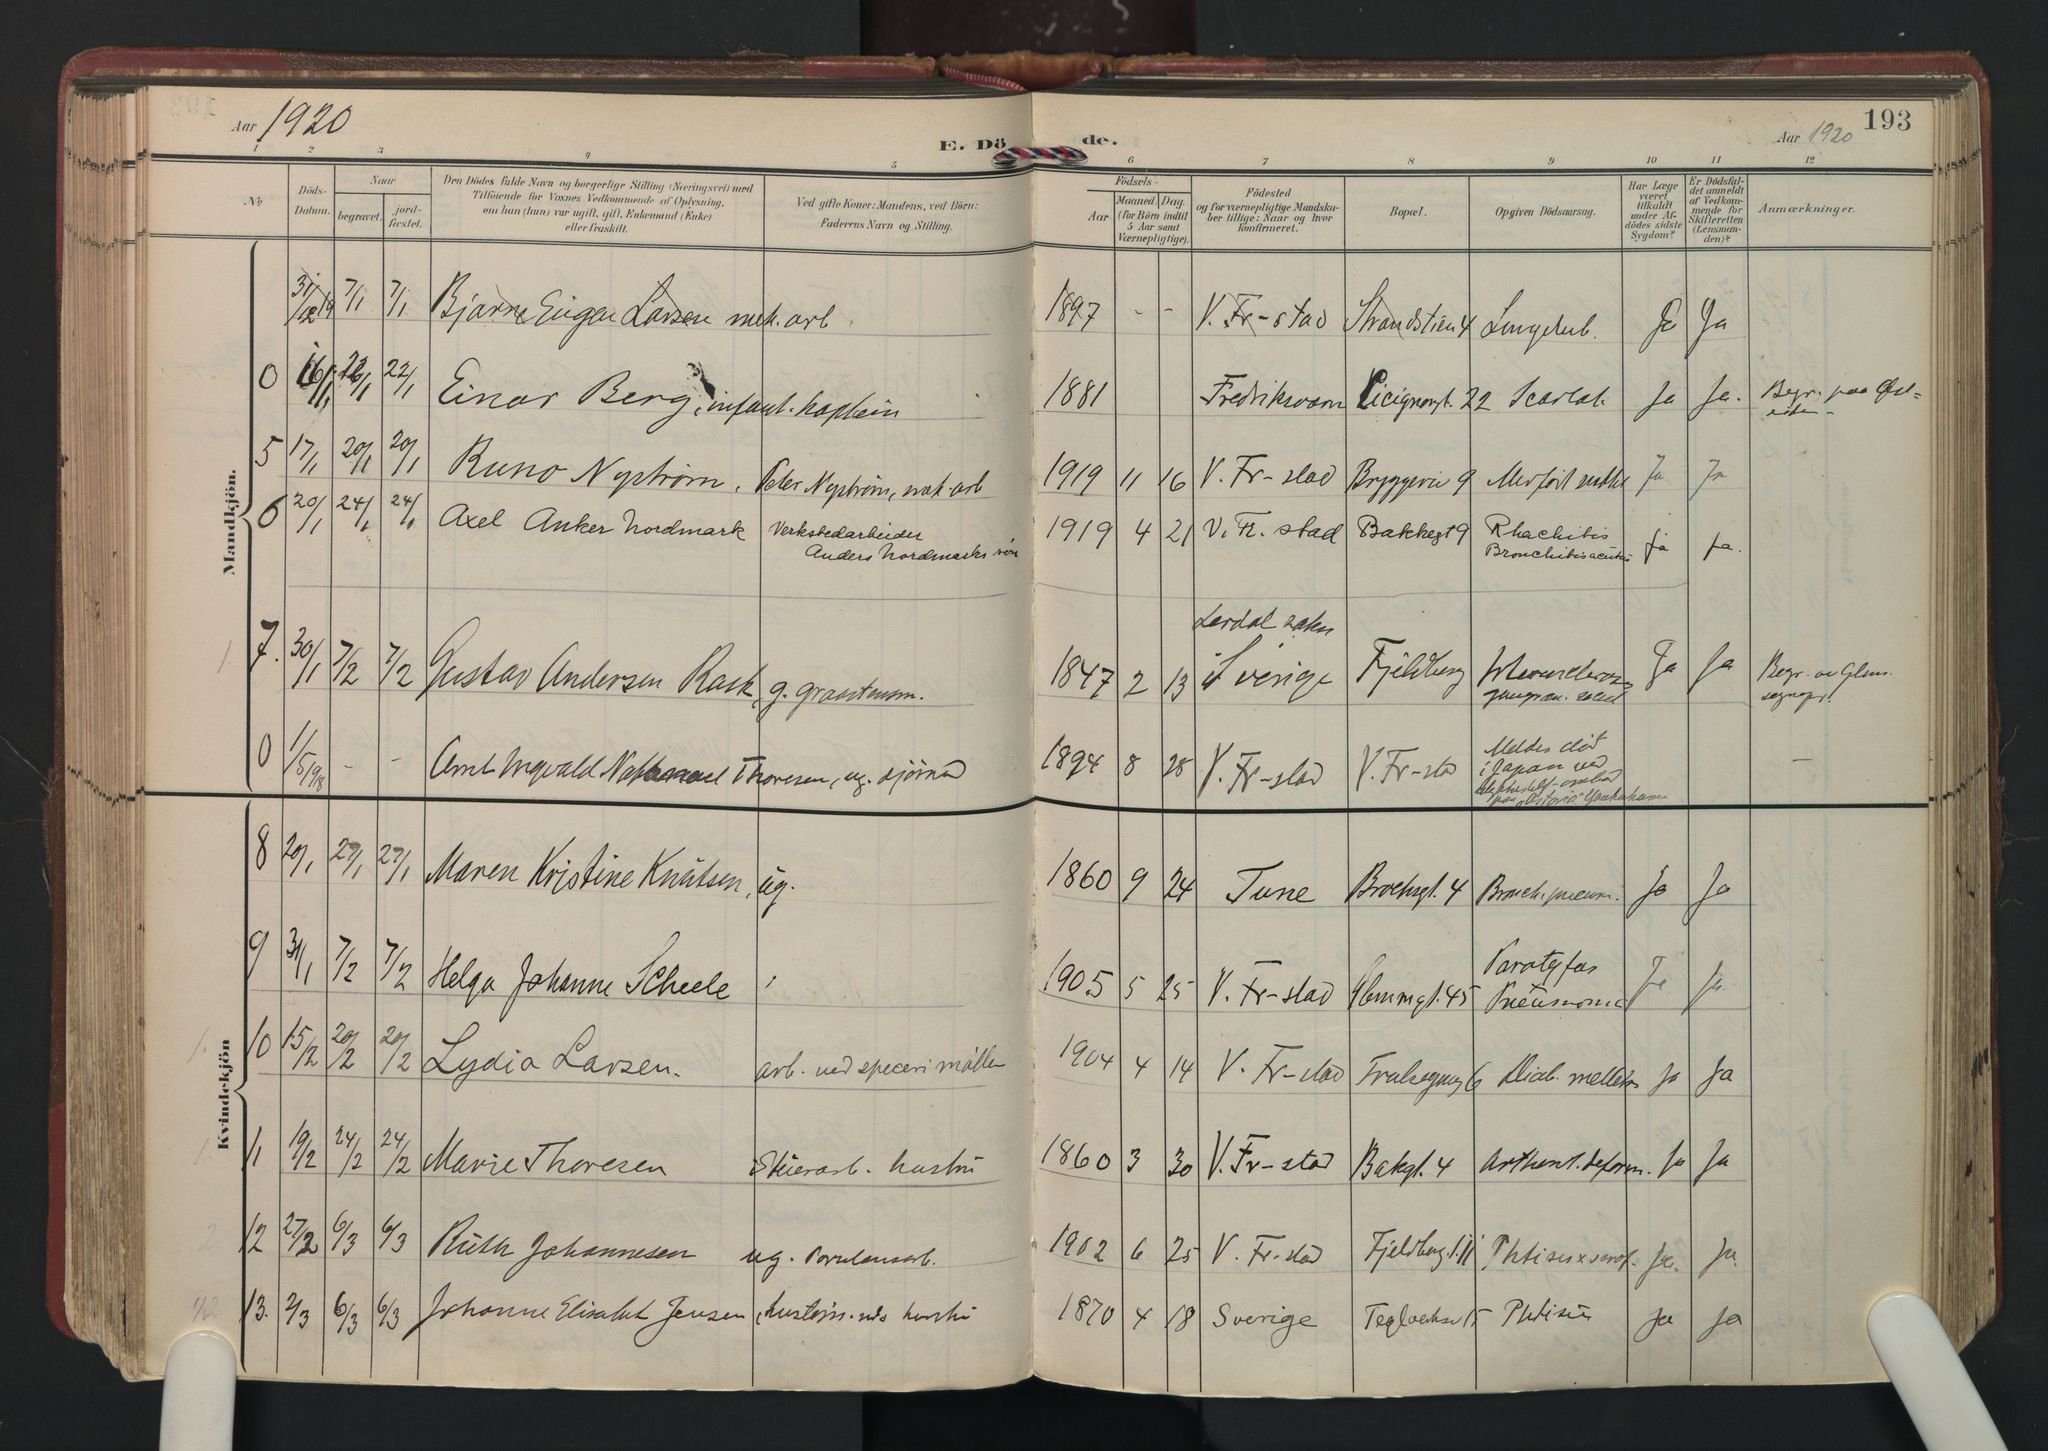 Aar 1920
E. Dö de.
193
Aar 1920
1 2 3 4 5 6 7 8 9 10 11 12
No
Döds-Datum.
Naar
begravet.
jord-fæstet.
Den Dödes fulde Navn og borgerlige Stilling (Næringsvei) med
Tilföiende for Voxnes Vedkommende af Oplysning,
om han (hun) var ugift, gift, Enkemand (Enke)
eller fraskilt.
Ved gifte Koner: Mandens, ved Börn:
Faderens Navn og Stilling.
Födsels-
Aar
Maaned. Dag.
(for Börn indtil
5 Aar samt
Værnepligtige).
Födested
og for værnepligtige Mandskaber tillige: Naar og hvor
konfirmeret.
Bopæl.
Opgiven Dödsaarsag.
Har Læge
været
tilkaldt
under Afdödes sidste
Sygdom?
Er Dödsfaldet anmeldt
af Vedkommende for
Skifteretten
(Lensmanden)?
Anmærkninger.
Mandkjön.
31/12 19 7/1 7/1 Bjarne Eugen Larsen mek. arb 1897 - - V. Fr-stad Strandstien 4 Ja Ja
0 16/1 22/1 22/1 Einar Berg, infant. kaptein 1881 Fredriksvarn 22 Scarlat. Ja Ja. Begr. paa Øst-
siden
5 17/1 20/1 20/1 Runo Nyström, Peter Nyström, mek. arb 1919 11 16 V. Fr-stad Bryggerie 9 Ja Ja
6 20/1 24/1 24/1 Axel Anker Nordmark Verkstedarbeider
Anders Nordmarks sön 1919 4 21 V. Fr. stad Bakkegt 9 Rhachitis
Bronchitis acuta ja ja.
7. 30/1 7/2 7/2 Gustav Andersen Rask, g. 1847 2 13 Lerdal sokn
i Sverige Fjeldberg Ja Ja Begr. av Glem.
sognepr.
0 1/5 1918 - - Arnt Ingvald Nathanael Thoresen, ug. sjömand 1894 8 28 V. Fr-stad V. Fr-stad Meldes död
i Japan ved
Yokohama -
Kvindekjön
8 20/1 27/1 27/1 Maren Kristine Knutsen, ug. 1860 9 24 Tune Brochsgt. 4 Bronch. pneum. Ja Ja
9 31/1 7/2 7/2 Helga Johanne Scheele 1905 5 25 V. Fr-stad Glemmgt. 45 Paratyfus
Pneumonie Ja Ja
10 15/2 20/2 20/2 Lydia Larsen. arb. ved 1904 4 14 V. Fr-stad 6 Diab. mellitus Ja Ja
11 19/2 24/2 24/2 Marie Thoresen hustru 1860 3 30 V. Fr-stad Bakgt. 4 deform. Ja Ja
12 27/2 6/3 6/3 Ruth Johannesen ug. 1902 6 25 V. Fr-stad Fjeldberg Phtisis Ja. Ja.
13. 2/3 6/3 6/3 Johanne Elisabet Jensen, hustru 1870 4 18 Sverige 15 Phtisis Ja Ja